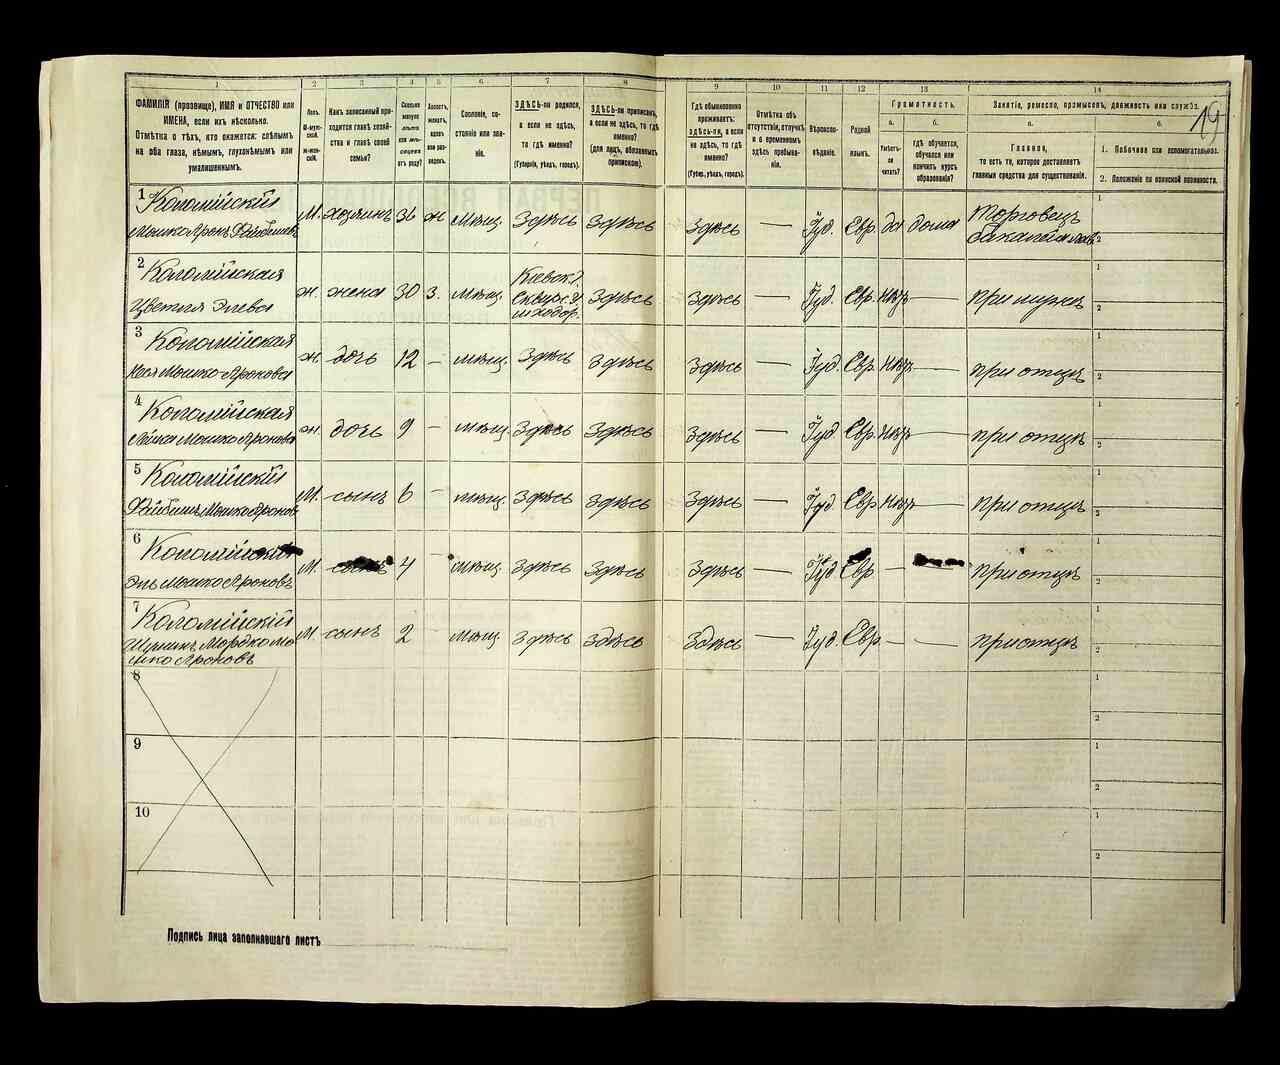 19
1 2 3 4 5 6 7 8 9 10 11 12 13 14
ФАМИЛІЯ (прозвище), ИМЯ и ОТЧЕСТВО или ИМЕНА, если ихъ нѣсколько.
Отмѣтка о тѣхъ, кто окажется: слѣпымъ на оба глаза, нѣмымъ, глухонѣмымъ или умалишеннымъ.
Полъ. М-мужской. Ж-женскій.
Какъ записанный приходится главѣ хозяйства и главѣ своей семьи?
Сколько минуло лѣтъ или мѣсяцевъ отъ роду?
Холостъ, женатъ, вдовъ или разведенъ.
Сословіе, состояніе или званіе.
ЗДѢСЬ-ли родился, а если не здѣсь, то гдѣ именно? (Губернія, уѣздъ, городъ).
ЗДѢСЬ-ли приписанъ, а если не здѣсь, то гдѣ именно? (для лицъ, обязанныхъ припискою).
Гдѣ обыкновенно проживаетъ: здѣсь-ли, а если не здѣсь, то гдѣ именно? (Губер., уѣздъ, городъ).
Отмѣтка объ отсутствіи, отлучкѣ и о временномъ здѣсь пребываніи.
Вѣроисповѣданіе.
Родной языкъ.
Грамотность.
а. Умѣетъ-ли читать?
б. гдѣ обучается, обучался или кончилъ курсъ образованія?
Занятіе, ремесло, промыселъ, должность или служба.
а. Главное, то есть то, которое доставляетъ главныя средства для существованія.
б.
1. Побочное или вспомогательное.
2. Положеніе по воинской повинности.
1 Коломійскій Мошко Аронъ Файбишевъ М. хозяинъ 36 ж. мѣщ. Здѣсь здѣсь здѣсь — Іуд. Евр. да дома торговецъ бакалейн. 1 2
2 Коломійская Цветля Элева ж. жена 30 з. мѣщ. Кіевск. г. Сквирс. у. здѣсь здѣсь — Іуд. Евр. нѣтъ — при мужѣ 1 2
3 Коломійская Хася Мошко-Аронова ж. дочь 12 — мѣщ. Здѣсь здѣсь здѣсь — Іуд. Евр. нѣтъ — при отцѣ 1 2
4 Коломійская Мошко Аронова ж. дочь 9 — мѣщ. Здѣсь Здѣсь здѣсь — Іуд. Евр. нѣтъ — при отцѣ 1 2
5 Коломійскій Файбишъ Мошко Аронов М. сынъ 6 — мѣщ. Здѣсь здѣсь здѣсь — Іуд. Евр. нѣтъ — при отцѣ 1 2
6 Коломійскій Эль Мошко Ароновъ М. сынъ 4 — мѣщ. Здѣсь здѣсь здѣсь — Іуд. Евр — при отцѣ 1 2
7 Коломійскій Мордко Мошко Ароновъ М сынъ 2 мѣщ. Здѣсь здѣсь Здѣсь — Іуд. Евр. — — при отцѣ 1 2
8 1 2
9 1 2
10 1 2
Подпись лица заполнявшаго листъ